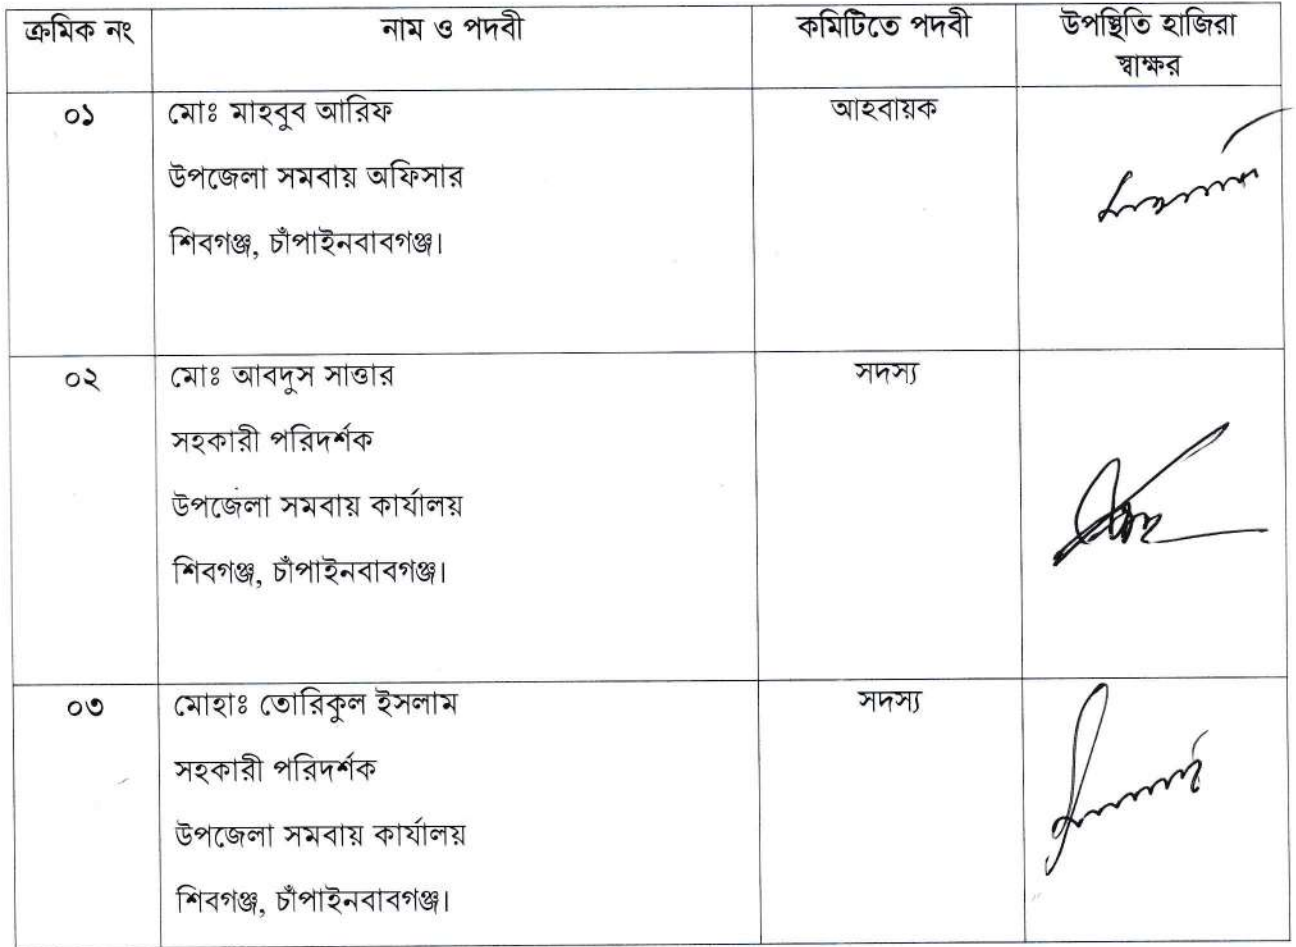 ক্রমিক নং নাম ও পদবী কমিটিতে পদবী উপস্থিতি হাজিরা
স্বাক্ষর
০১ মোঃ মাহবুব আরিফ আহবায়ক
উপজেলা সমবায় অফিসার
শিবগঞ্জ, চাঁপাইনবাবগঞ্জ।
০২ মোঃ আবদুস সাত্তার সদস্য
সহকারী পরিদর্শক
উপজেলা সমবায় কার্যালয়
শিবগঞ্জ, চাঁপাইনবাবগঞ্জ।
০৩ মোহাঃ তোরিকুল ইসলাম সদস্য
সহকারী পরিদর্শক
উপজেলা সমবায় কার্যালয়
শিবগঞ্জ, চাঁপাইনবাবগঞ্জ।